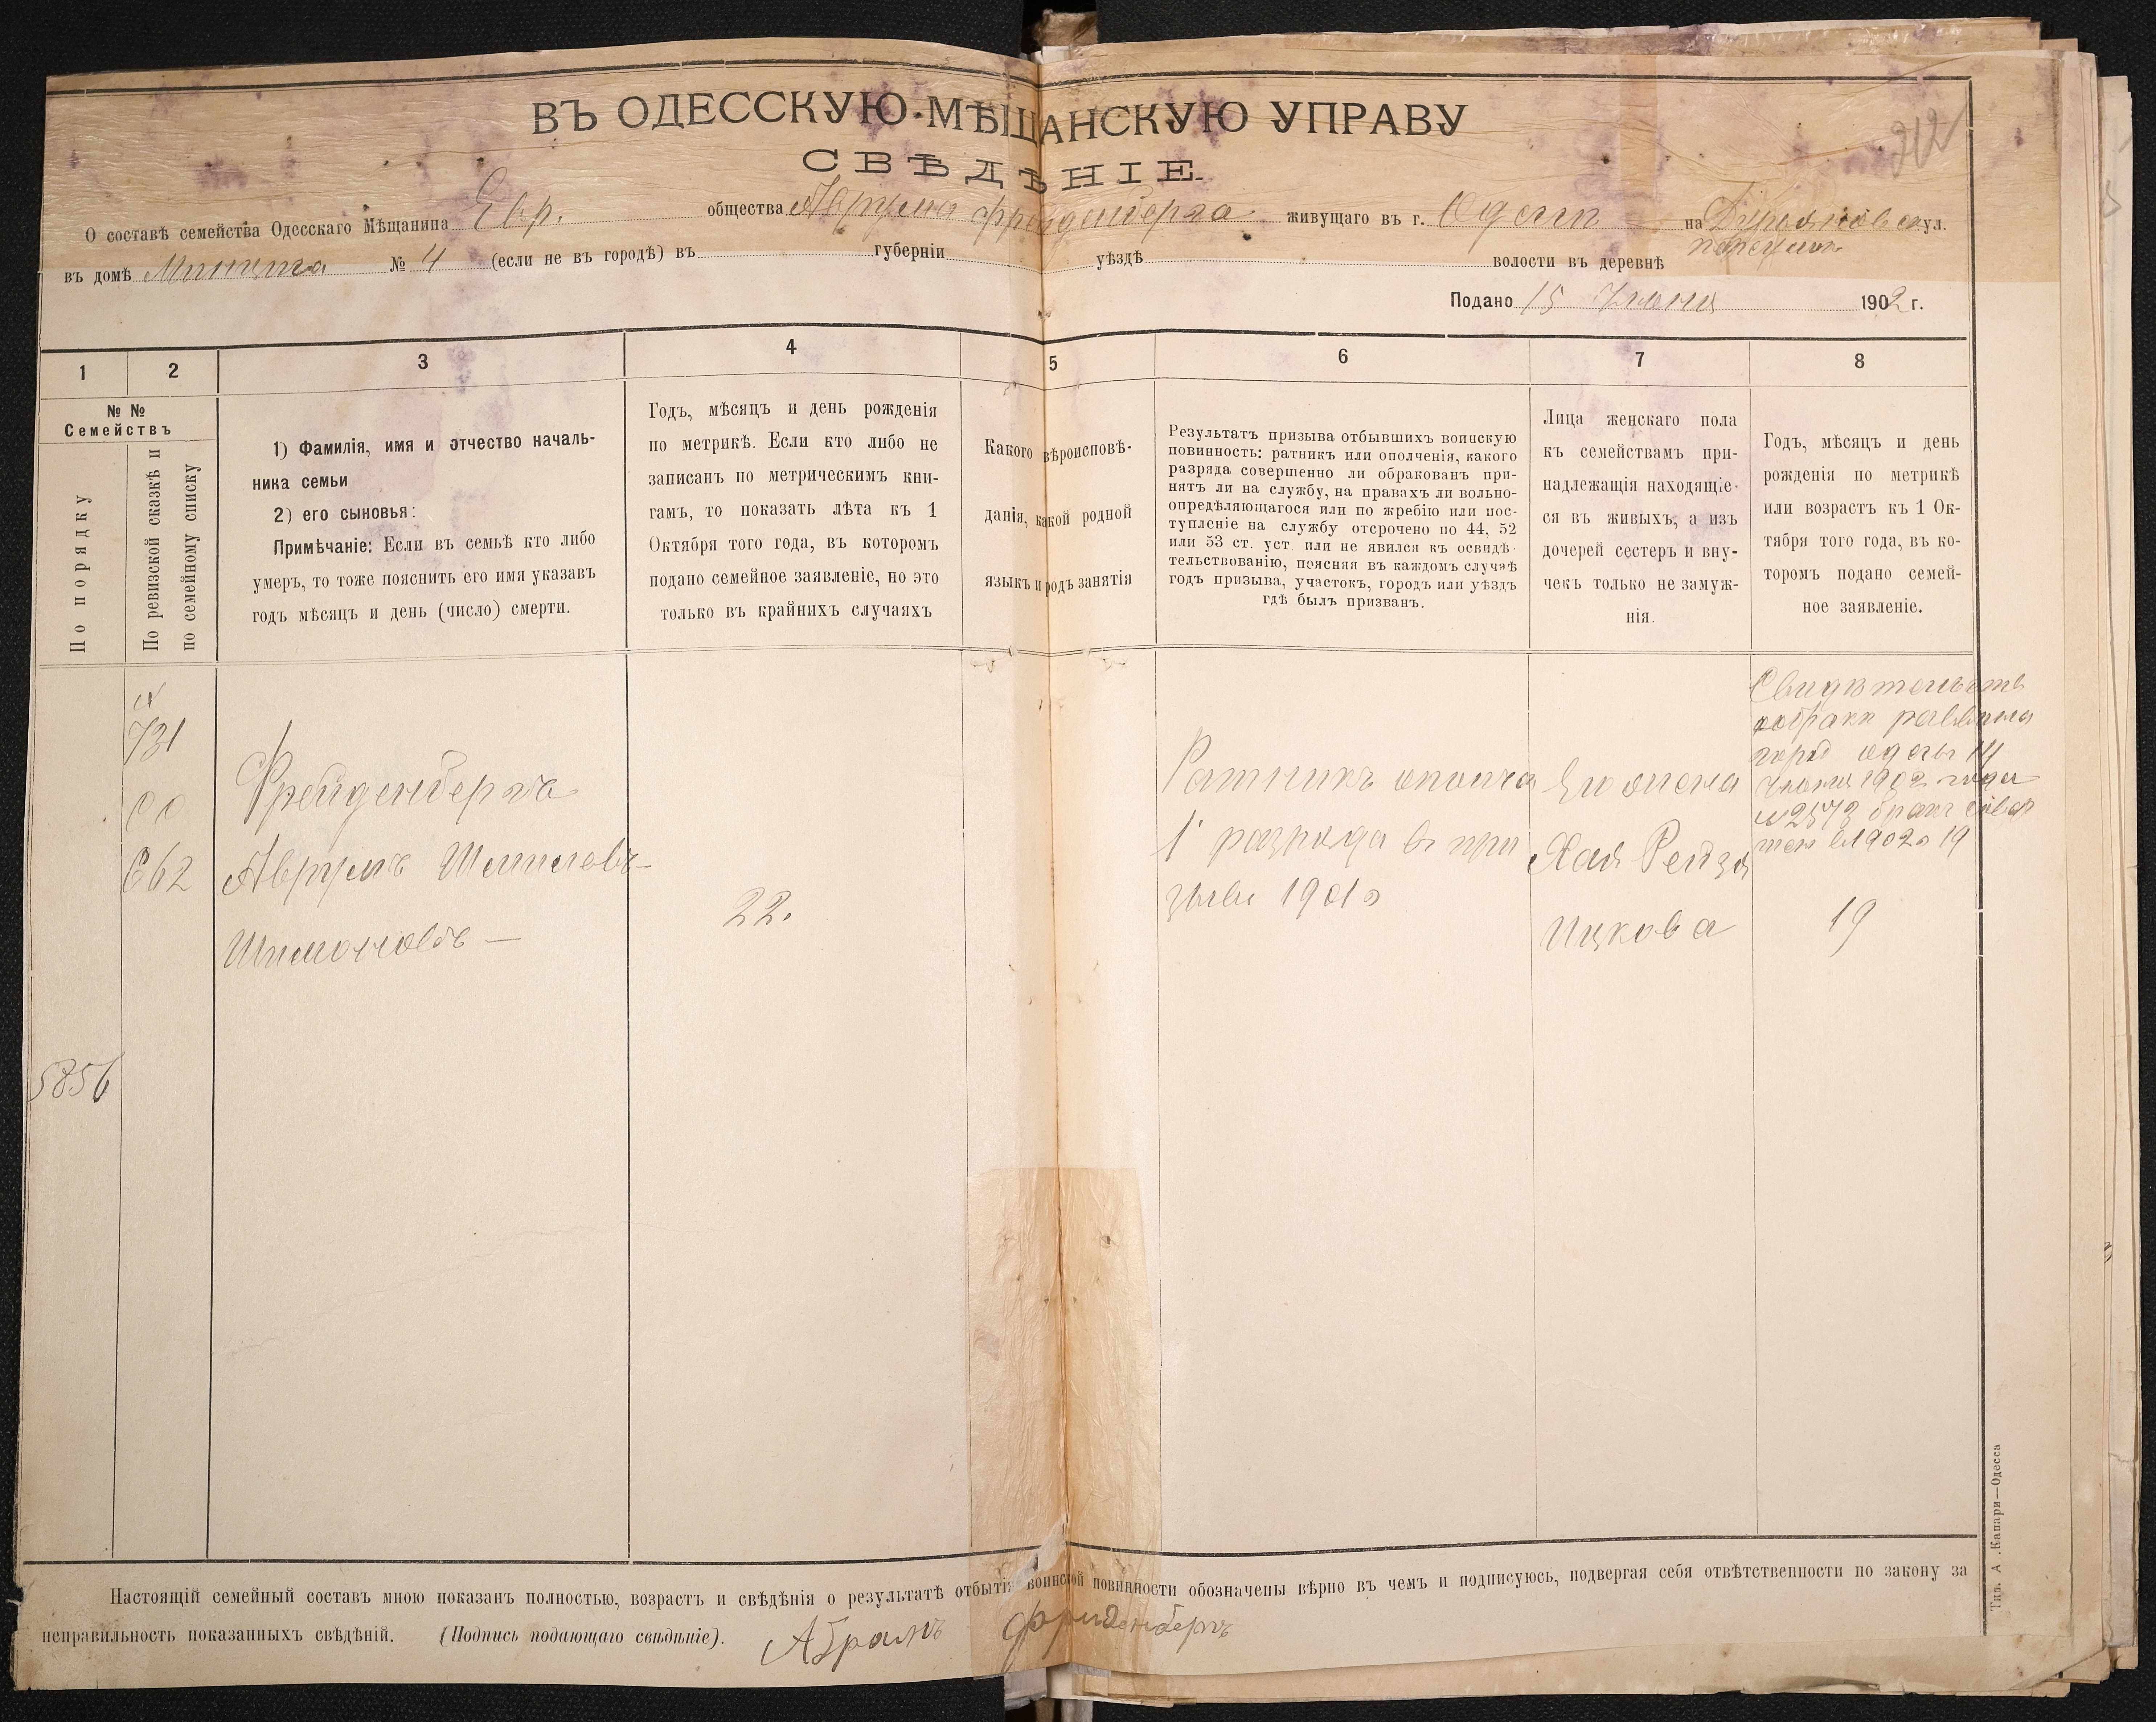 ВЪ ОДЕССКУЮ МѢЩАНСКУЮ УПРАВУ
212
СВѢДѢНІЕ.
О составѣ семейства Одесскаго Мѣщанина Евр. общества Аврума Фрейденберга живущаго въ г. Одессѣ на ул.
въ домѣ № 4 (если не въ городѣ) въ губерніи уѣздѣ волости въ деревнѣ
Подано 15 Іюня 1902 г.
1
2
3
4
5
6
7
8
№ №
Семействъ
По порядку
По ревизской сказкѣ и
по семейному списку
1) Фамилія, имя и отчество началь-
ника семьи
2) его сыновья:
Примѣчаніе: Если въ семьѣ кто либо
умеръ, то тоже пояснить его имя указавъ
годъ мѣсяцъ и день (число) смерти.
Годъ, мѣсяцъ и день рожденія
по метрикѣ. Если кто либо не
записанъ по метрическимъ кни-
гамъ, то показать лѣта къ 1
Октября того года, въ которомъ
подано семейное заявленіе, но это
только въ крайнихъ случаяхъ
Какого вѣроисповѣ-
данія, какой родной
языкъ и родъ занятія
Результатъ призыва отбывшихъ воинскую
повинность: ратникъ или ополченія, какого
разряда совершенно ли обракованъ при-
нятъ ли на службу, на правахъ ли вольно-
опредѣляющагося или по жребію или пос-
тупленіе на службу отсрочено по 44, 52
или 53 ст. уст. или не явился къ освидѣ-
тельствованію, поясняя въ каждомъ случаѣ
годъ призыва, участокъ, городъ или уѣздъ
гдѣ былъ призванъ.
Лица женскаго пола
къ семействамъ при-
надлежащія находящіе-
ся въ живыхъ, а изъ
дочерей сестеръ и вну-
чекъ только не замуж-
нія.
Годъ, мѣсяцъ и день
рожденія по метрикѣ
или возрастъ къ 1 Ок-
тября того года, въ ко-
торомъ подано семей-
ное заявленіе.
5856
№
731
662
Фрейденбергъ
Аврумъ Шмилевъ-
Шимоновъ —
22.
Ратникъ ополче
1 разряда въ при
зыви 1901 г
Его жена
Хая Рейзя
Ицкова
Свидѣтельство
о бракѣ раввина
город Одессы 14
Іюня 1902 года
№ 2573 бракъ
19
Настоящій семейный составъ мною показанъ полностью, возрастъ и свѣдѣнія о результатѣ отбытія воинской повинности обозначены вѣрно въ чемъ и подписуюсь, подвергая себя отвѣтственности по закону за
неправильность показанныхъ свѣдѣній. (Подпись подающаго свѣдѣніе). Абрамъ Фриденбергъ
Тип. А. Капари—Одесса